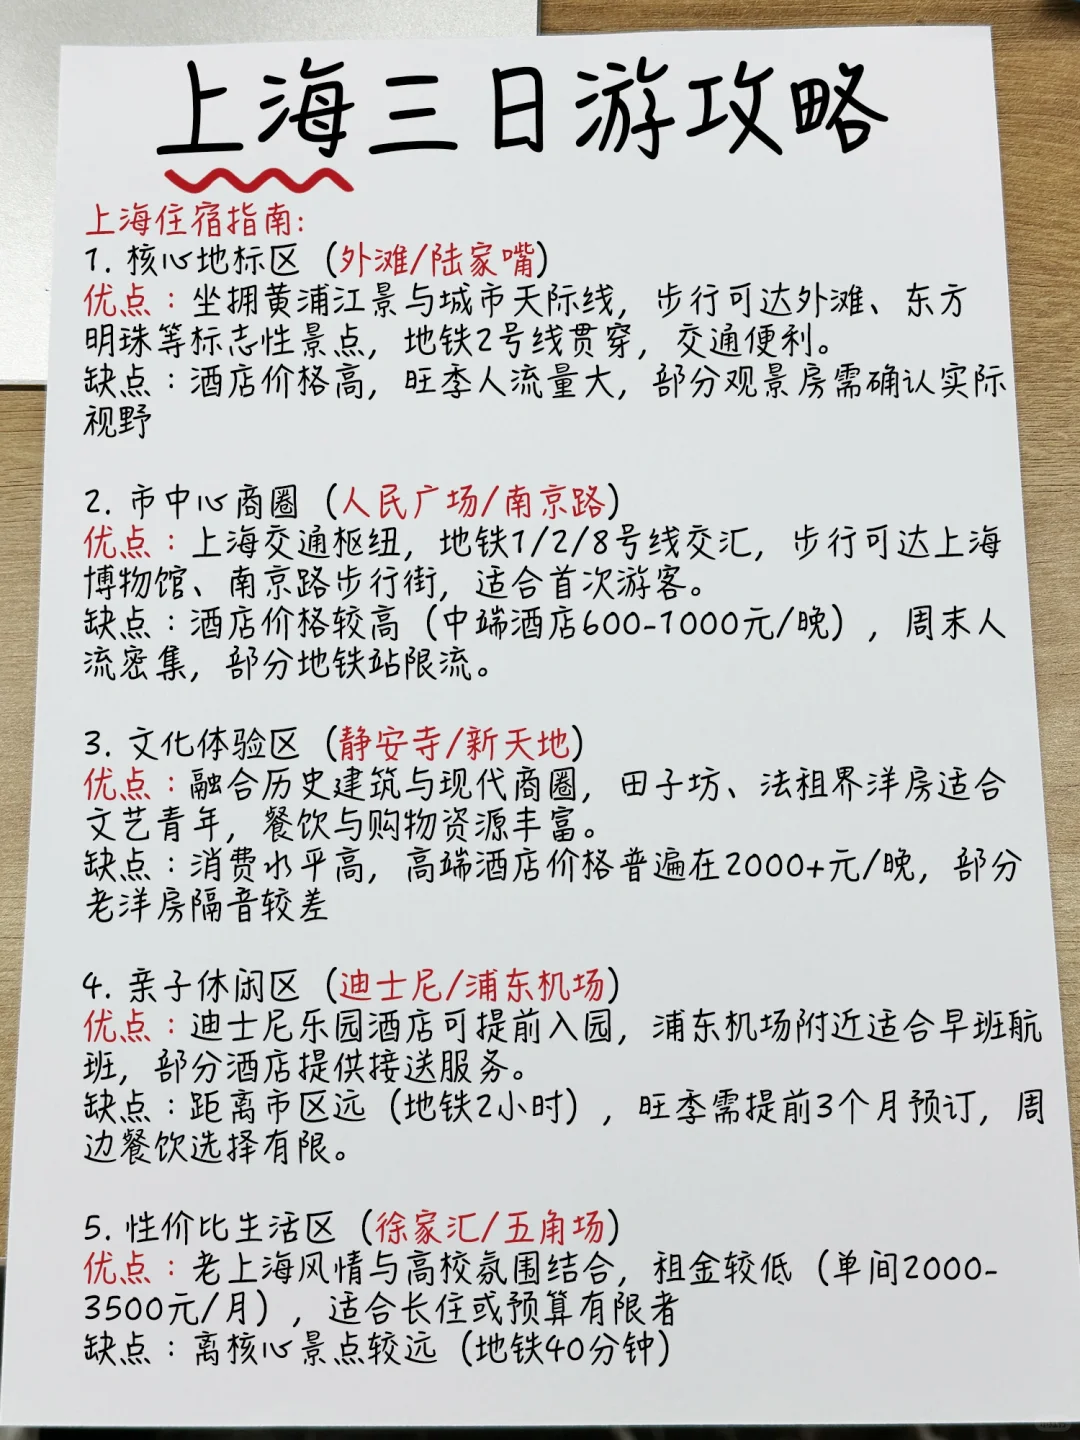 上海三日游攻略
上海住宿指南:
1. 核心地标区（外滩/陆家嘴）
优点：坐拥黄浦江景与城市天际线，步行可达外滩、东方
明珠等标志性景点，地铁2号线贯穿，交通便利。
缺点：酒店价格高，旺季人流量大，部分观景房需确认实际
视野
2. 市中心商圈（人民广场/南京路）
优点：上海交通枢纽，地铁1/2/8号线交汇，步行可达上海
博物馆、南京路步行街，适合首次游客。
缺点：酒店价格较高（中端酒店600-1000元/晚），周末人
流密集，部分地铁站限流。
3. 文化体验区（静安寺/新天地）
优点：融合历史建筑与现代商圈，田子坊、法租界洋房适合
文艺青年，餐饮与购物资源丰富。
缺点：消费水平高，高端酒店价格普遍在2000+元/晚，部分
老洋房隔音较差
4. 亲子休闲区（迪士尼/浦东机场）
优点：迪士尼乐园酒店可提前入园，浦东机场附近适合早班航
班，部分酒店提供接送服务。
缺点：距离市区远（地铁2小时），旺季需提前3个月预订，周
边餐饮选择有限。
5. 性价比生活区（徐家汇/五角场）
优点：老上海风情与高校氛围结合，租金较低（单间2000-
3500元/月），适合长住或预算有限者
缺点：离核心景点较远（地铁40分钟）